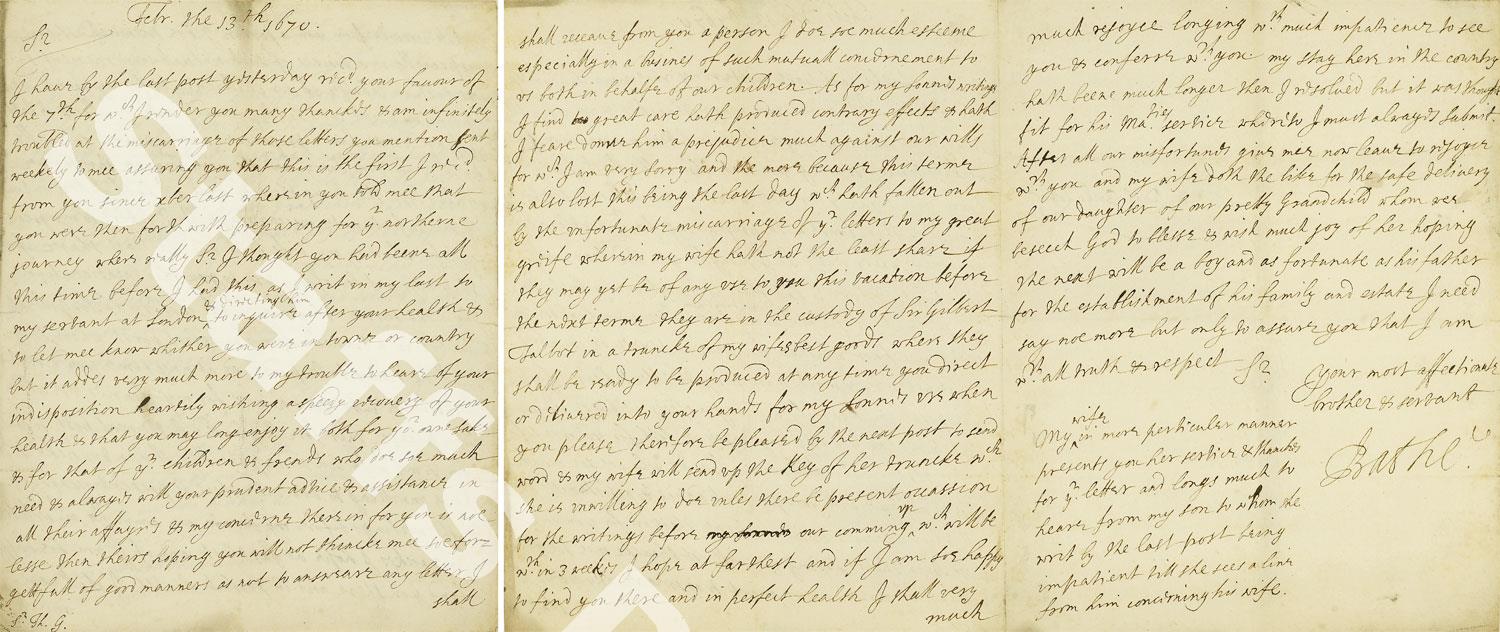 Febr. the 13th 1670.
Sr
I haue by the last post yisterday recd your fauour of
the 7th for wch I render you many thanckes & am infinitely
troubled at the miscarriage of those letters you mention sent
weekely to mee assuring you that this is the first I recd
from you since xber last wherein you told mee that
you were then forthwith preparing for yr northerne
journey where really Sr I thought you had beene all
this time before I had this, as I writ in my last to
my servant at London & directing him to inquire after your health &
to let mee know whither you were in towne or country
but it addes very much more to my trouble to heare of your
indisposition heartily wishing a speedy recouery of your
health & that you may long enjoy it both for yor owne sake
& for that of yr children & frends who doe soe much
need & alwayes will your prudent advice & assistance in
all their affayres & my concerne therein for you is noe
lesse then theirs hoping you will not thincke mee soe for=
gettfull of good manners as not to answeare any letter I
shall
Sr Th. G.
shall receaue from you a person I doe soe much esteeme
especially in a busines of such mutuall concernement to
vs both in behalfe of our children. As for my sonnes writings
I find great care hath produced contrary effects & hath
I feare donne him a prejudice much against our wills
for wch I am very sorry and the more because this terme
is also lost this being the last day wch hath fallen out
by the infortunate miscarriage of yr letters to my great
greife wherein my wife hath not the least share if
they may yet be of any vse to you this vacation before
the next terme they are in the custody of Sir Gilbert
Talbot in a truncke of my wifes best goods where they
shall be ready to be produced at any time you direct
or deliuered into your hands for my sonnes vse when
you please therefore be pleased by the next post to send
word & my wife will send vp the key of her truncke wch
she is inwilling to doe vnles there be present occassion
for the writings before our comming vp wch will be
wthin 3 weekes I hope at farthest and if I am soe happy
to find you there and in perfect health I shall very
much
much rejoyce longing wth much impatience to see
you & conferre wth you my stay here in the country
hath beene much longer then I resolued but it was thought
fit for his Maties service whereto I must alwayes submit.
After all our misfortunes giue mee now leaue to rejoyce
wth you and my wife doth the like for the safe delivery
of our daughter of our pretty Grandchild whom wee
beseech God to blesse & wish much joy of her hoping
the next will be a boy and as fortunate as his father
for the establishment of his family and estate I need
say noe more but only to assure you that I am
wth all truth & respect Sr
Your most affectionate
brother & servant
Bathe
My wife in more perticular manner
presents you her service & thanckes
for yr letter and longs much to
heare from my son to whom she
writ by the last post being
impatient till she sees a line
from him concerning his wife.